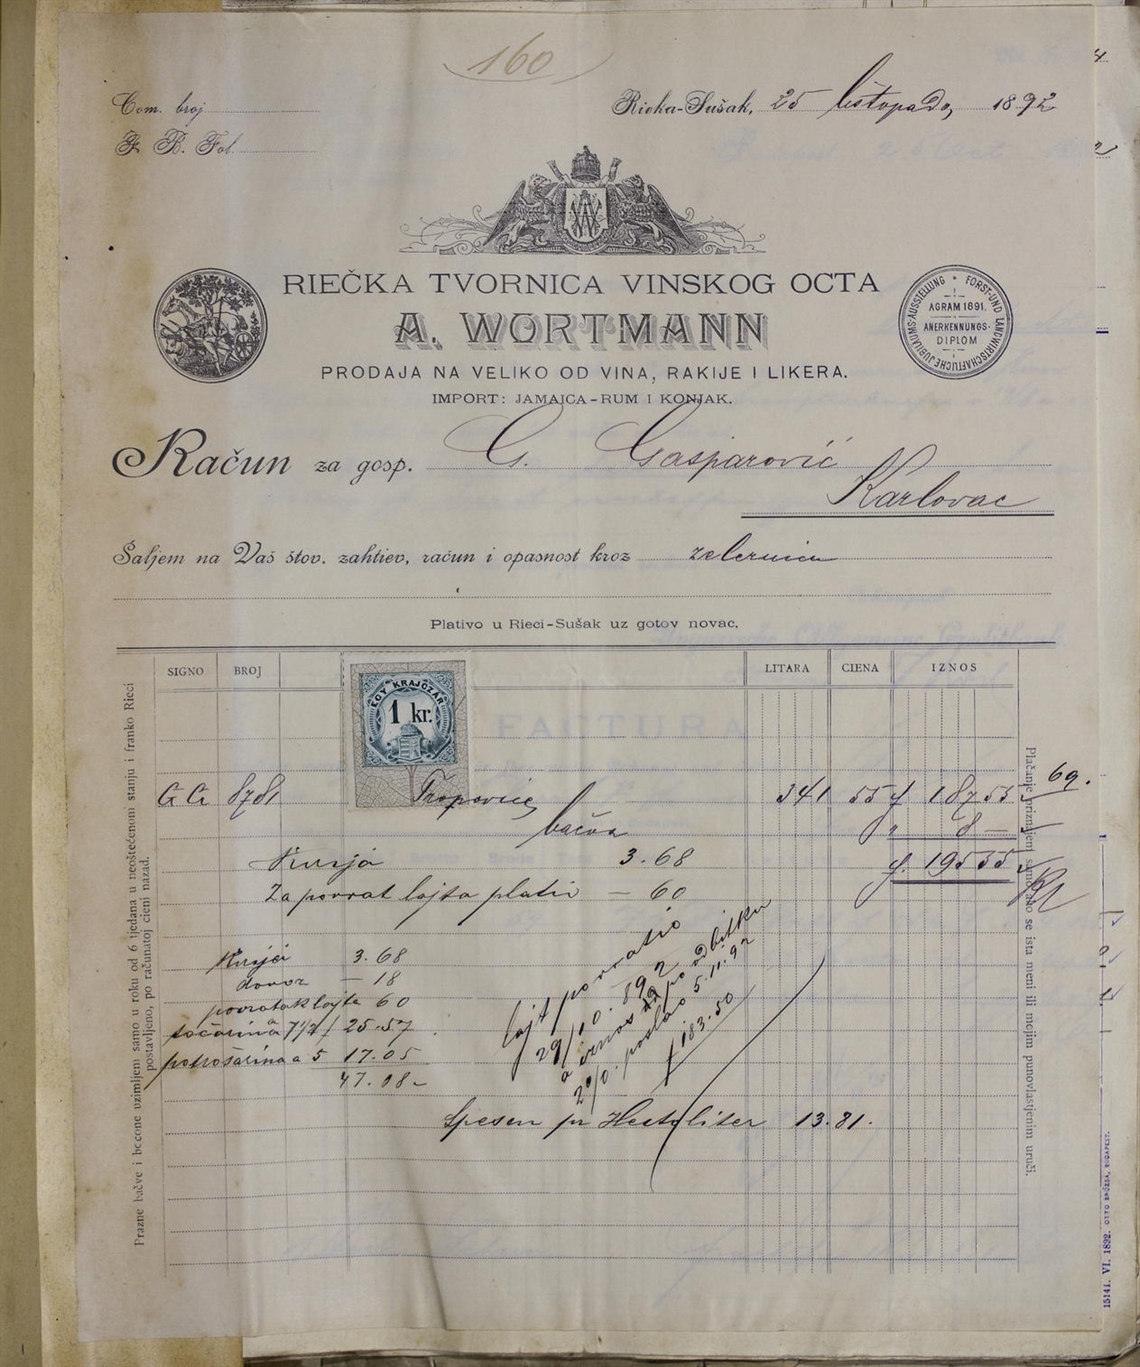 160
Com. broj
F. B. Fol.
Rieka-Sušak, 25 listopada, 1892
RIEČKA TVORNICA VINSKOG OCTA
A. WORTMANN
PRODAJA NA VELIKO OD VINA, RAKIJE I LIKERA.
IMPORT: JAMAJCA-RUM I KONJAK.
FORST- UND LANDWIRTSCHAFTLICHE JUBILÄUMS-AUSSTELLUNG
AGRAM 1891.
ANERKENNUNGS-
DIPLOM
Račun za gosp. G. Gasparović
Karlovac
Šaljem na Vaš štov. zahtiev, račun i opasnost kroz
Plativo u Rieci-Sušak uz gotov novac.
SIGNO BROJ LITARA CIENA IZNOS
EGY KRAJCZÁR
1 kr.
FACTURA
G G 8781 Tropovice, 341 55 f 187 55 69.
bačva " 8 —
3.68 f. 195 55
Za povrat lajta platio — 60
3.68
dovoz — 18
povratak lajta 60
točarina a 7½ / 25.57
potrošarina a 5 17.05
47.08 –
lajt povratio
29/10. 892
a iznos po odbitku
2% poslao 5.11.92
f 183.50
Spesen pr Hectoliter 13.81.
Prazne bačve i boccone uzimljem samo u roku od 6 tjedana u neoštećenom stanju i franko Rieci
postavljeno, po računatoj cieni nazad.
Plaćanje priznajem samo ako se ista meni ili mojim punovlastjenim uruči.
15141. VI. 1892. OTTO BRÓZIA, BUDAPEST.